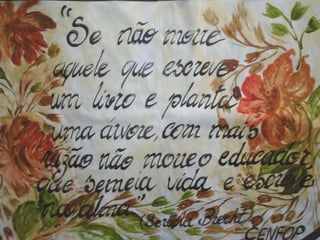 "Se não morre
aquele que escreve
um livro e planta
uma árvore, com mais
razão não morre o educador
que semeia vida e escreve
na alma"
(Bertold Brecht)
CENFOP